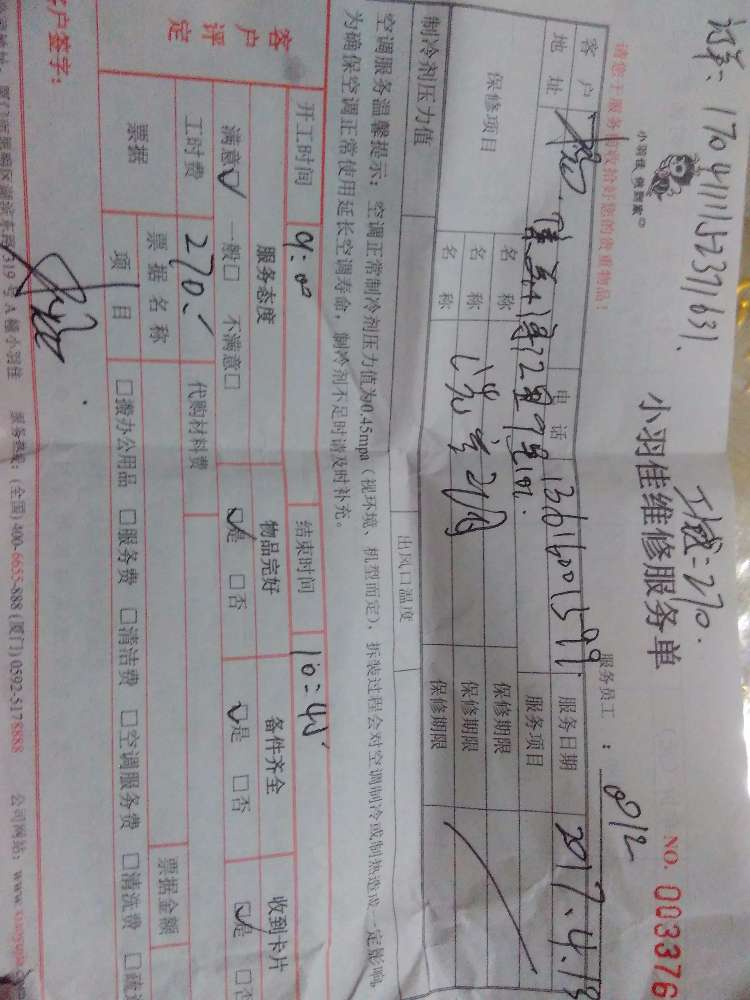 订单：1704111152371631.
工费：270.
小羽佳 做到家
小羽佳维修服务单
NO. 003376
请您于服务前收拾好您的贵重物品！
服务员工：812
客户
电话
服务日期 2017.4.1
地址
服务项目
保修项目
名称
保修期限
名称
保修期限
名称
保修期限
制冷剂压力值
出风口温度
空调服务温馨提示：空调正常制冷剂压力值为0.45mpa（视环境、机型而定），拆装过程会对空调制冷或制热造成一定影响，
为确保空调正常使用延长空调寿命，制冷剂不足时请及时补充。
开工时间 9:00 结束时间 10:45
客户评定
服务态度 物品完好 备件齐全 收到卡片
满意☑ 一般□ 不满意□ ☑是 □否 ☑是 □否 ☑是 □否
工时费 270. 代购材料费
票据
票据名称
票据金额
项目
□搬办公用品 □服务费 □清洁费 □空调服务费 □清洗费
客户签字：
319号A幢小羽佳 服务热线：(全国) 400-6655-888 (厦门) 0592-5176888 公司网站：